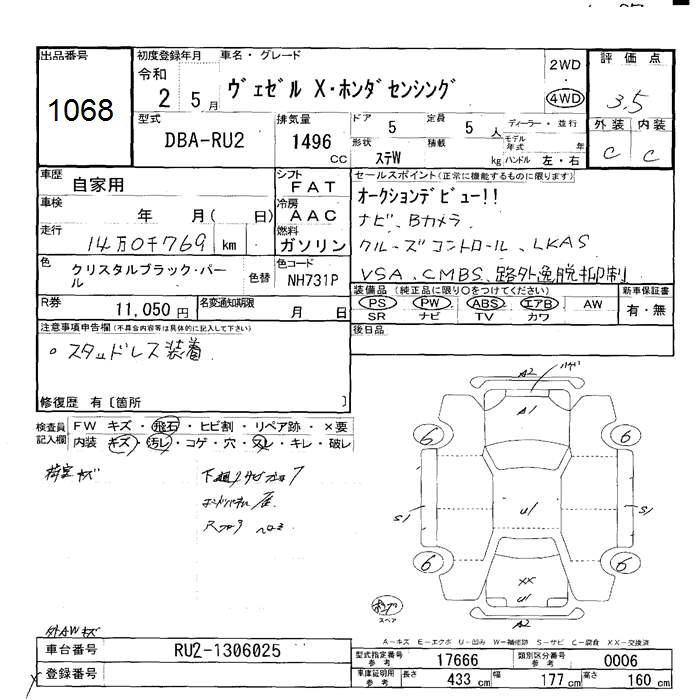 出品番号
1068
初度登録年月
令和
2 5月
車名・グレード
ヴェゼル X・ホンダセンシング
2WD
4WD
評価点
3.5
外装 内装
C C
型式
DBA-RU2
排気量
1496
CC
ドア 5
定員 5 人
形状 ステW
積載 kg
ディーラー・並行
モデル年式 年
ハンドル 左・右
車歴 自家用
車検 年 月( 日)
走行 14万0千769 km
色 クリスタルブラック・パール
色替
シフト FAT
冷房 AAC
燃料 ガソリン
色コード NH731P
R券 11,050円
名変通知期限 月 日
セールスポイント(正常に機能するものに限ります)
オークションデビュー!!
ナビ、Bカメラ
クルーズコントロール、LKAS
VSA、CMBS、路外逸脱抑制
装備品(純正品に限り○をつけてください)
PS PW ABS エアB AW
SR ナビ TV カワ
新車保証書
有・無
後日品
注意事項申告欄(不具合内容等は具体的に記入して下さい)
○スタッドレス装着
修復歴 有〔箇所 〕
検査員記入欄
FW キズ・飛石・ヒビ割・リペア跡・×要
内装 キズ・汚レ・コゲ・穴・スレ・キレ・破レ
荷室キズ
外AWキズ
A2
A1
6
6
S1
U1
S1
6
6
XX
U1
A2
スペア
A−キズ E−エクボ U−凹み W−補修跡 S−サビ C−腐食 XX−交換済
車台番号 RU2-1306025
登録番号
型式指定番号参考 17666
類別区分番号参考 0006
車庫証明用参考 長さ 433 cm 幅 177 cm 高さ 160 cm